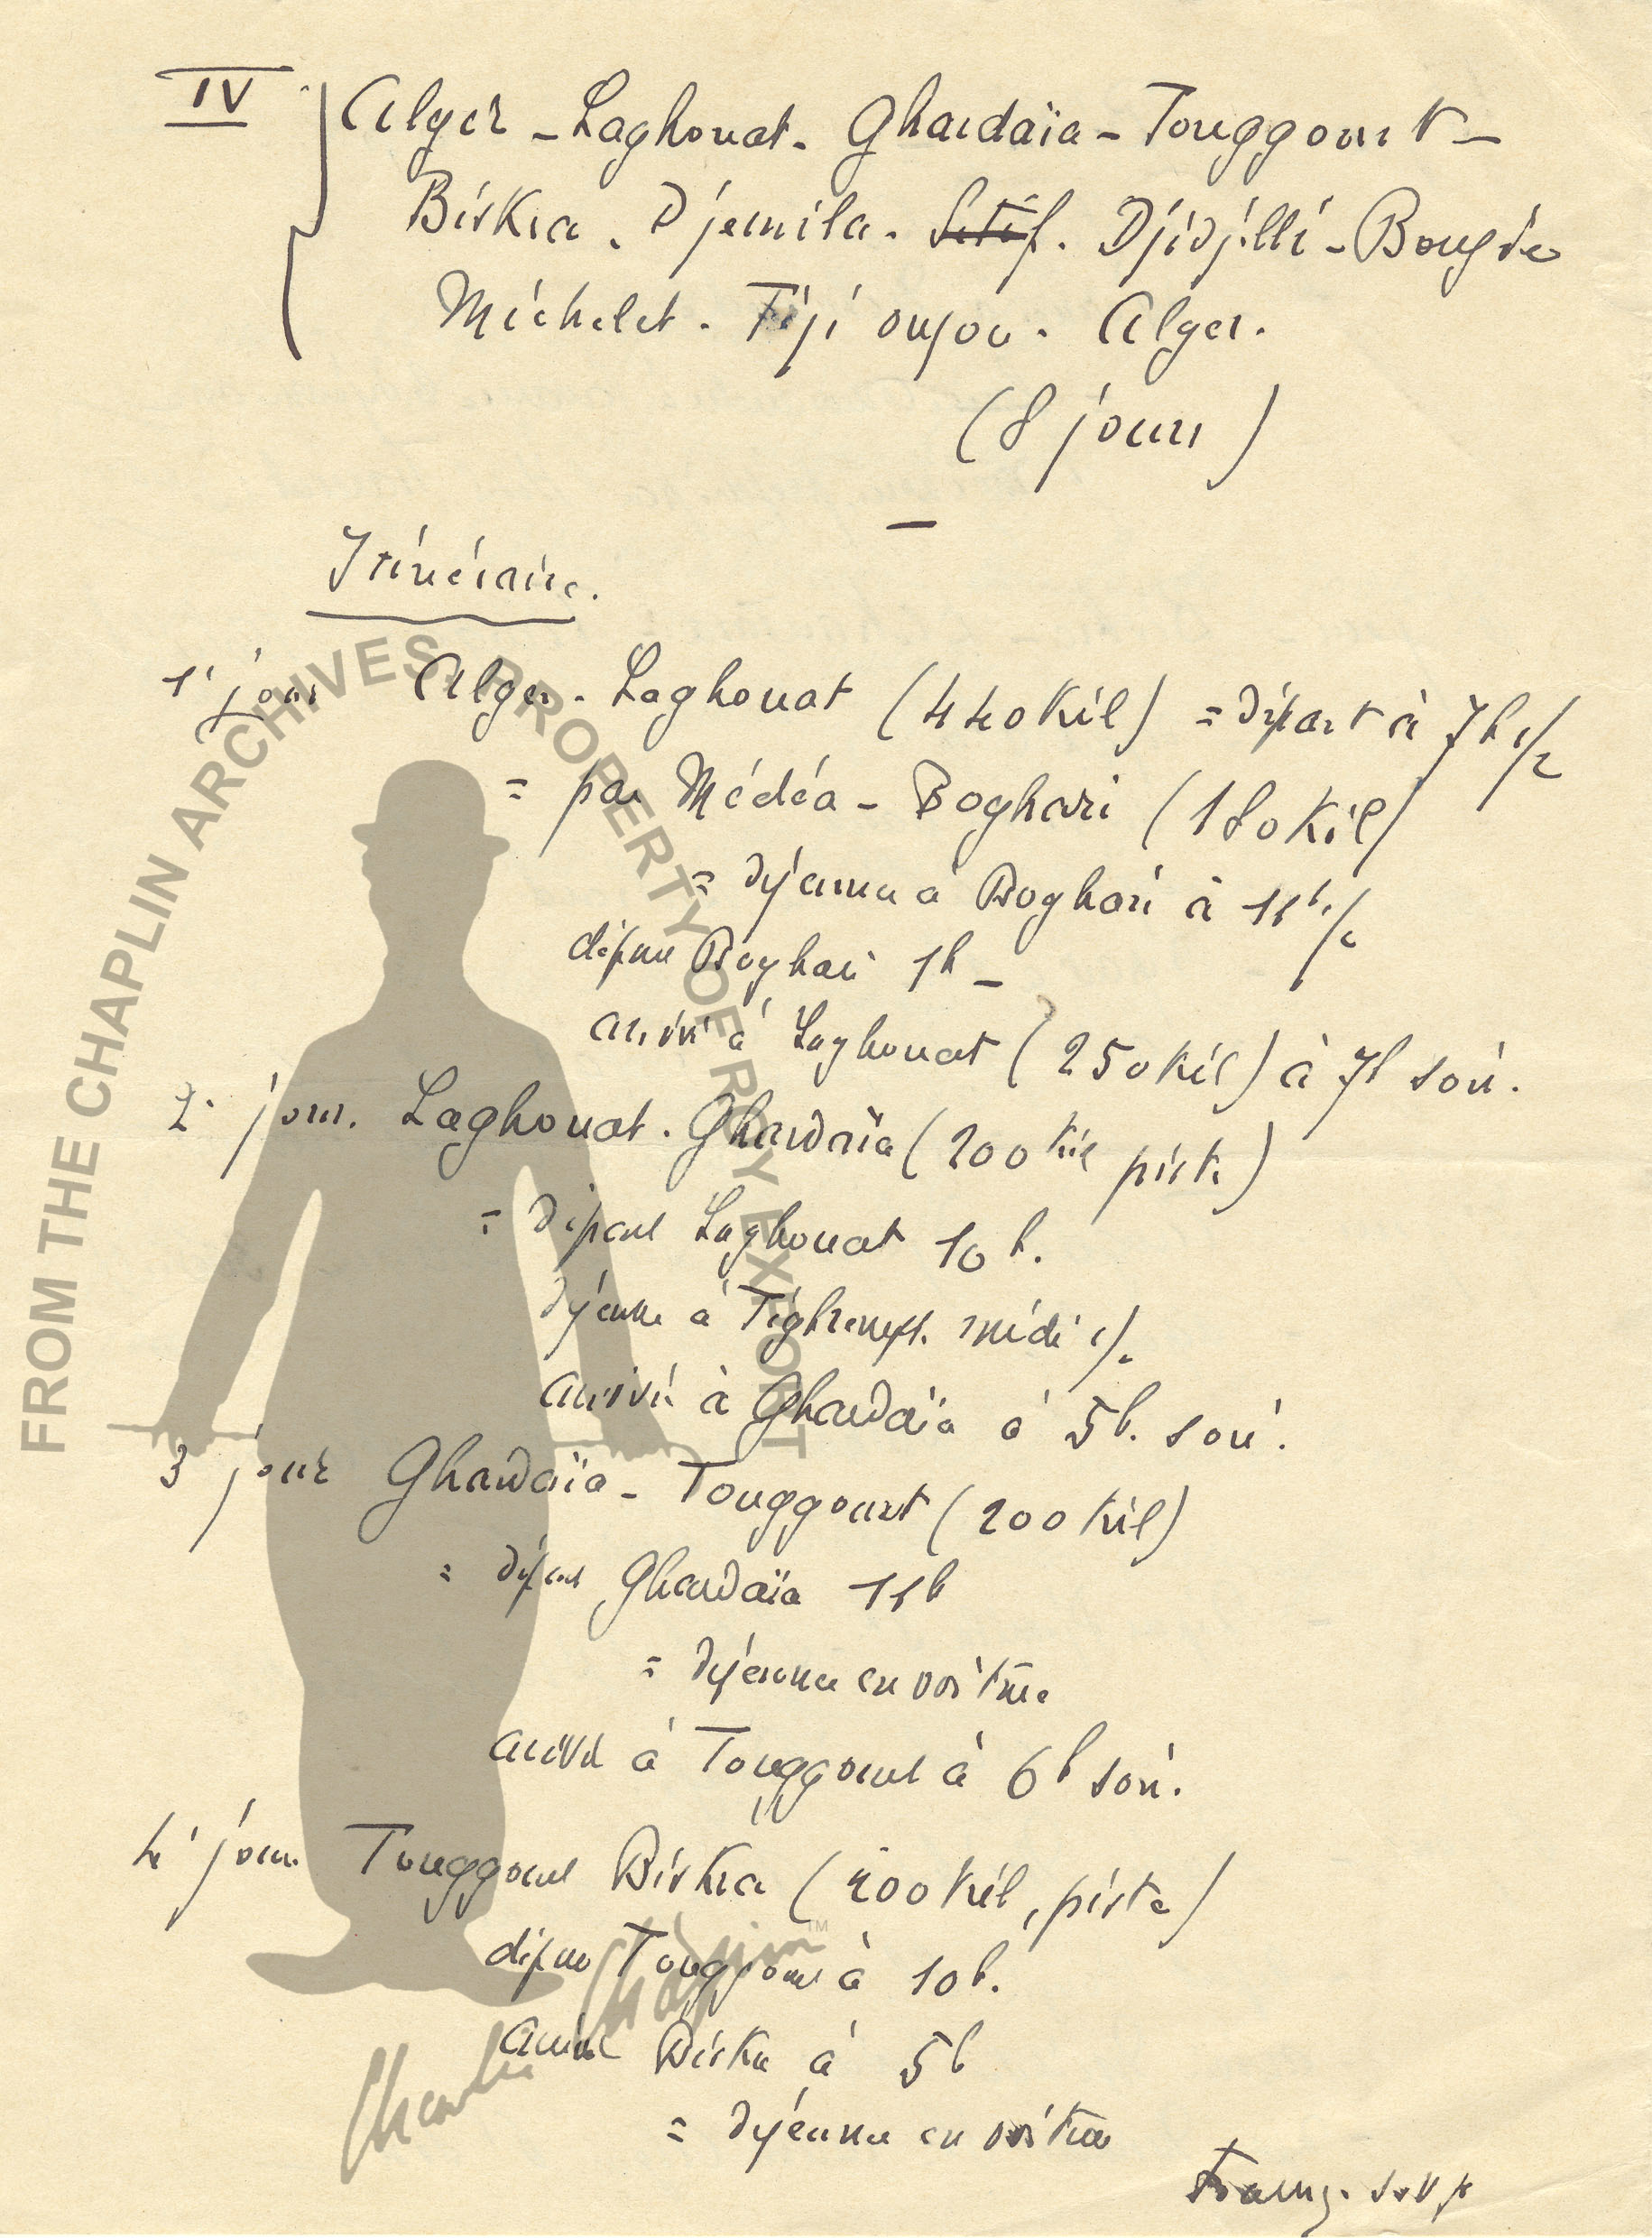 IV Alger - Laghouat - Ghardaïa - Touggourt -
Biskra. Djemila. Sétif. Djidjelli - Bougie
Michelet. Tiji ouzou. Alger.
(8 jours)
Itinéraire.
1r jour Alger - Laghouat (440 Kil) = départ à 7h 1/2
= par Médéa - Boghari (180 Kil)
= Déjeuner à Boghari à 11h 1/2
départ Boghari 1h -
arrivée à Laghouat (250 Kil) à 7h soir.
2e jour. Laghouat. Ghardaïa (200 kil piste)
= Départ Laghouat 10h.
Déjeuner à midi 1/2
arrivée à Ghardaïa à 5h. soir.
3 jour Ghardaïa - Touggourt (200 Kil)
= départ Ghardaïa 11h
= Déjeuner en voiture
arrivée à Touggourt à 6h soir.
4e jour Touggourt Biskra (200 Kil, piste)
départ Touggourt à 10h.
arrivée Biskra à 5h
= Déjeuner en voiture
FROM THE CHAPLIN ARCHIVES. PROPERTY OF ROY EXPORT
Charlie Chaplin™